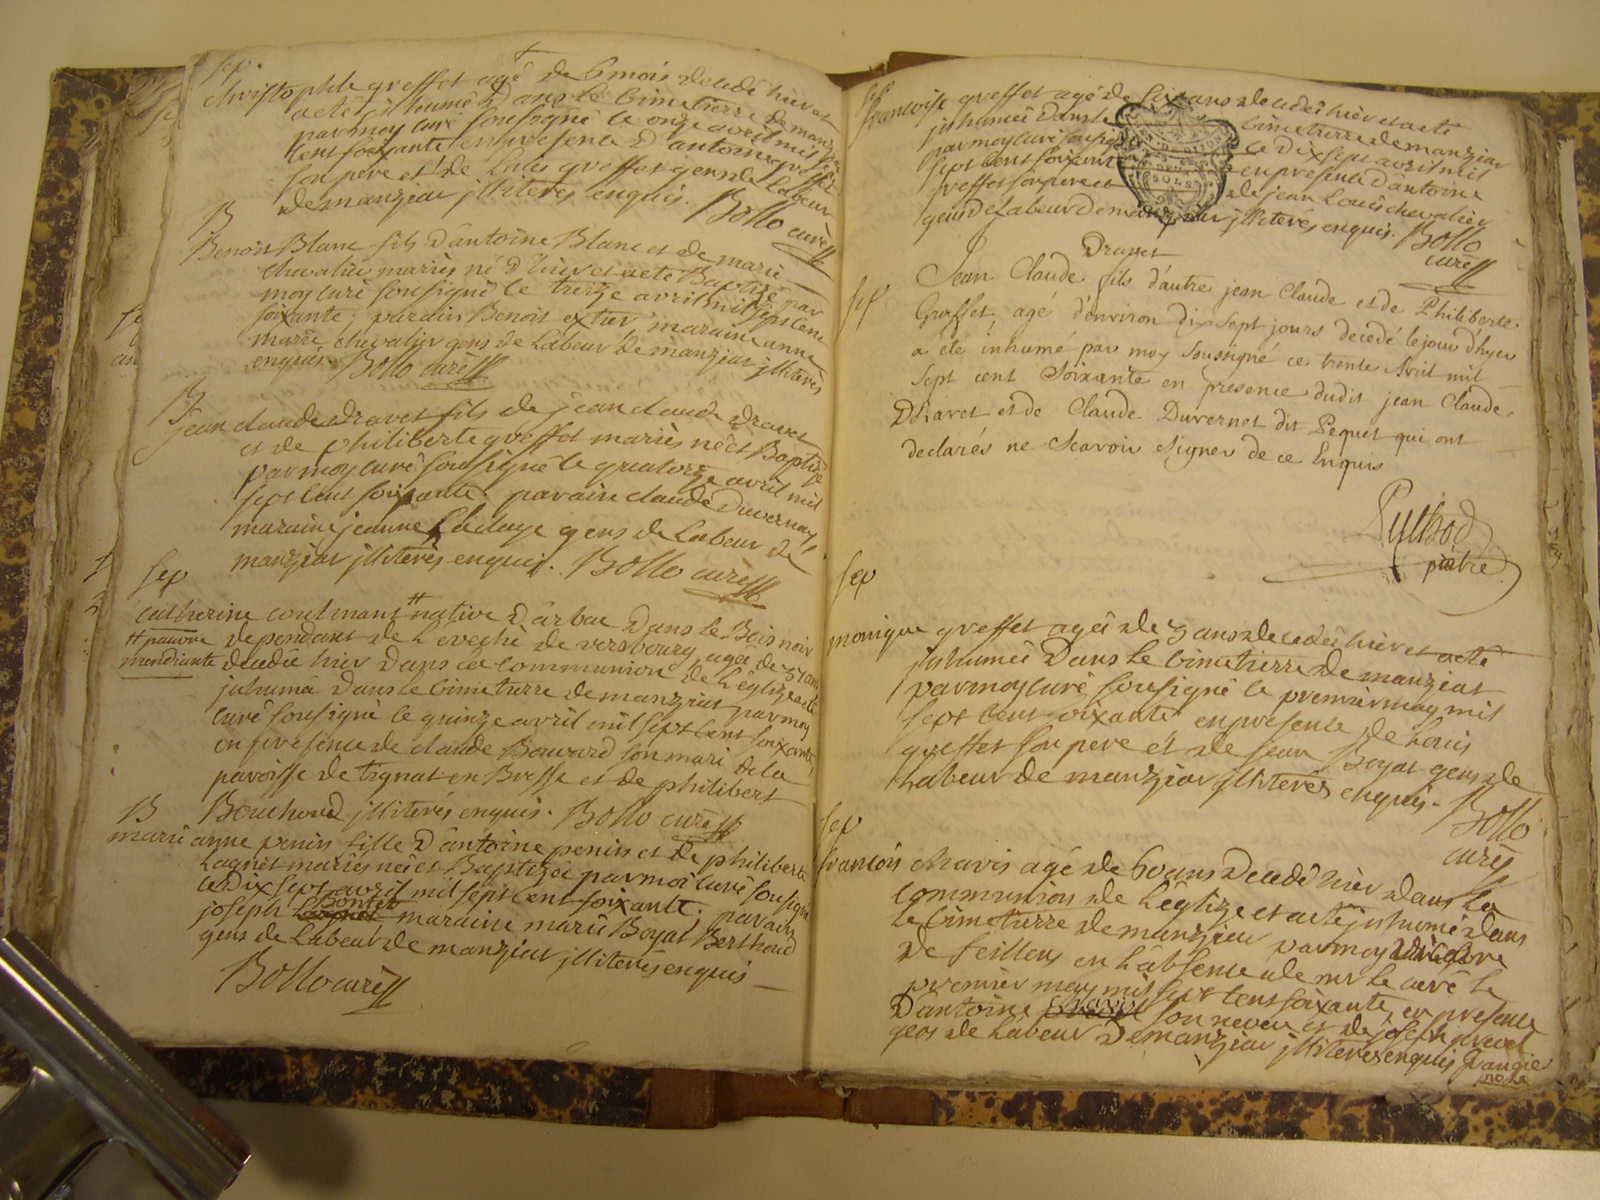 sep
christophle greffet agé de 6 mois decedé hier et
acté inhumé Dans le Cimetierre de manziat
par moy curé sousigné le onze avril mil sept
cent soixante en presence D'antoine greffet
son pere et de Louis greffet gens de Labeur
de manziat jlliterés enquis. Bollo curé
B
Benoit Blanc fils d'antoine Blanc et de marie
chevalier mariés né d'hier et acté Baptizé par
moy curé sousigné le treize avril mil sept cent
soixante; parain Benoit extier maraine anne
marie chevalier gens de Labeur de manziat jlliterés
enquis. Bollo curé
B
jean claude dravet fils de jean claude dravet
et de philiberte greffet mariés né et Baptizé
par moy curé sousigné le quatorze avril mil
sept cent soixante. parain claude Duvernay,
maraine jeanne gens de Labeur de
manziat jlliterés enquis. Bollo curé
sep
catherine coulmant # native D'arbac Dans le Bois noir
# pauvre dependant de L'eveché de versbourg agée de 57 ans
mendiante decedée hier Dans la communion de L'eglize acté
inhumée Dans le Cimetierre de manziat par moy
curé sousigné le quinze avril mil sept cent soixante,
en presence de claude Bouvard son mari de la
paroisse de tignat en Bresse et de philibert
B Bouchard jlliterés enquis. Bollo curé
marie anne penin fille D'antoine penin et de philiberte
Lagnet mariés née et Baptizée par moi curé sousigné
le Dix sept avril mil sept cent soixante. parain
joseph Bontet maraine marie Boyat Berthaud
gens de Labeur de manziat jlliterés enquis
Bollo curé
sep
francoise greffet agé de six ans decedé hier et acté
inhumée Dans le Cimetierre de manziat
par moy curé sousigné le Dix sept avril mil
sept cent soixante en presence d'antoine
greffet son pere et de jean Louis chevalier
gens de Labeur de manziat jlliterés enquis. Bollo
curé
Dravet
sep Jean Claude fils d'autre jean Claude et de Philiberte
Greffet, agé d'environ dix sept jours decedé le jour d'hyer
a été inhumé par moy soussigné ce trente Avril mil
sept cent soixante en presence dudit jean Claude
DRavet et de Claude Duvernet dit Pequet qui ont
declarés ne scavoir signer de ce Enquis
Puthod
prêtre
sep
monique greffet agée de 3 ans decedée hier et acté
inhumée Dans le Cimetierre de manziat
par moy curé sousigné le premier may mil
sept cent soixante en presence de Louis
greffet son pere et de jean Boyat gens de
Labeur de manziat jlliterés enquis. Bollo
curé
sep
francois chavis agé de 60 ans decedé hier dans la
communion de L'eglize et acté inhumé dans
le Cimetierre de manziat par moy vicaire
de feillens en L'absence de mr le curé le
premier may mil sept cent soixante, en presence
D'antoine chavis son neveu et de joseph prevel
gens de Labeur Demanziat jlliterés enquis frangier